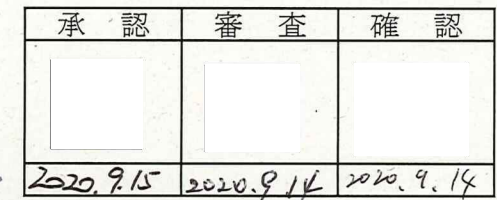 承 認 審 査 確 認
2020.9.15 2020.9.14 2020.9.14